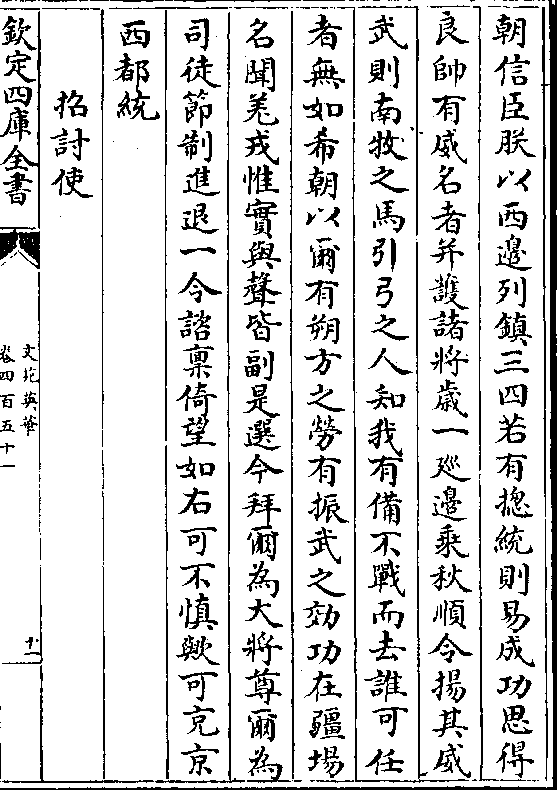 朝信臣朕以西邊列鎮三四若有摠統則易成功思得
良帥有威名者并護諸將歲一廵邊乘秋順令揚其威
武則南牧之馬引弓之人知我有備不戰而去誰可任
者無如希朝以爾有朔方之勞有振武之効功在疆場
名聞羌戎惟實與聲皆副是選今拜爾為大將尊爾為
司徒節制進退一令諮禀倚望如右可不慎歟可充京
西都統
招討使
欽定四庫全書
文苑英華
卷四百五十一
十一